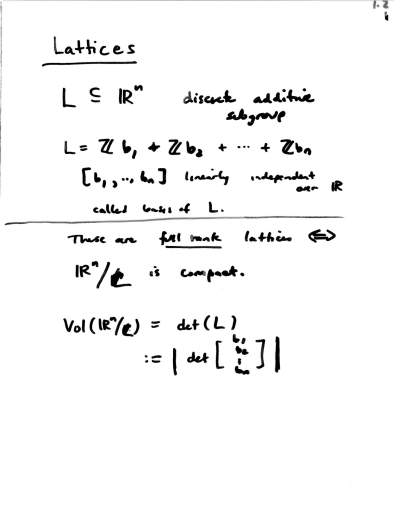 1.2
Lattices
L ⊆ ℝⁿ discrete additive
subgroup
L = ℤb₁ + ℤb₂ + ⋯ + ℤbₙ
[b₁, .., bₙ] linearly independent
over ℝ
called basis of L.
These are full rank lattices ⟺
ℝⁿ/L is compact.
Vol(ℝⁿ/L) = det(L)
:= | det [ b₁ b₂ ⋮ bₙ ] |